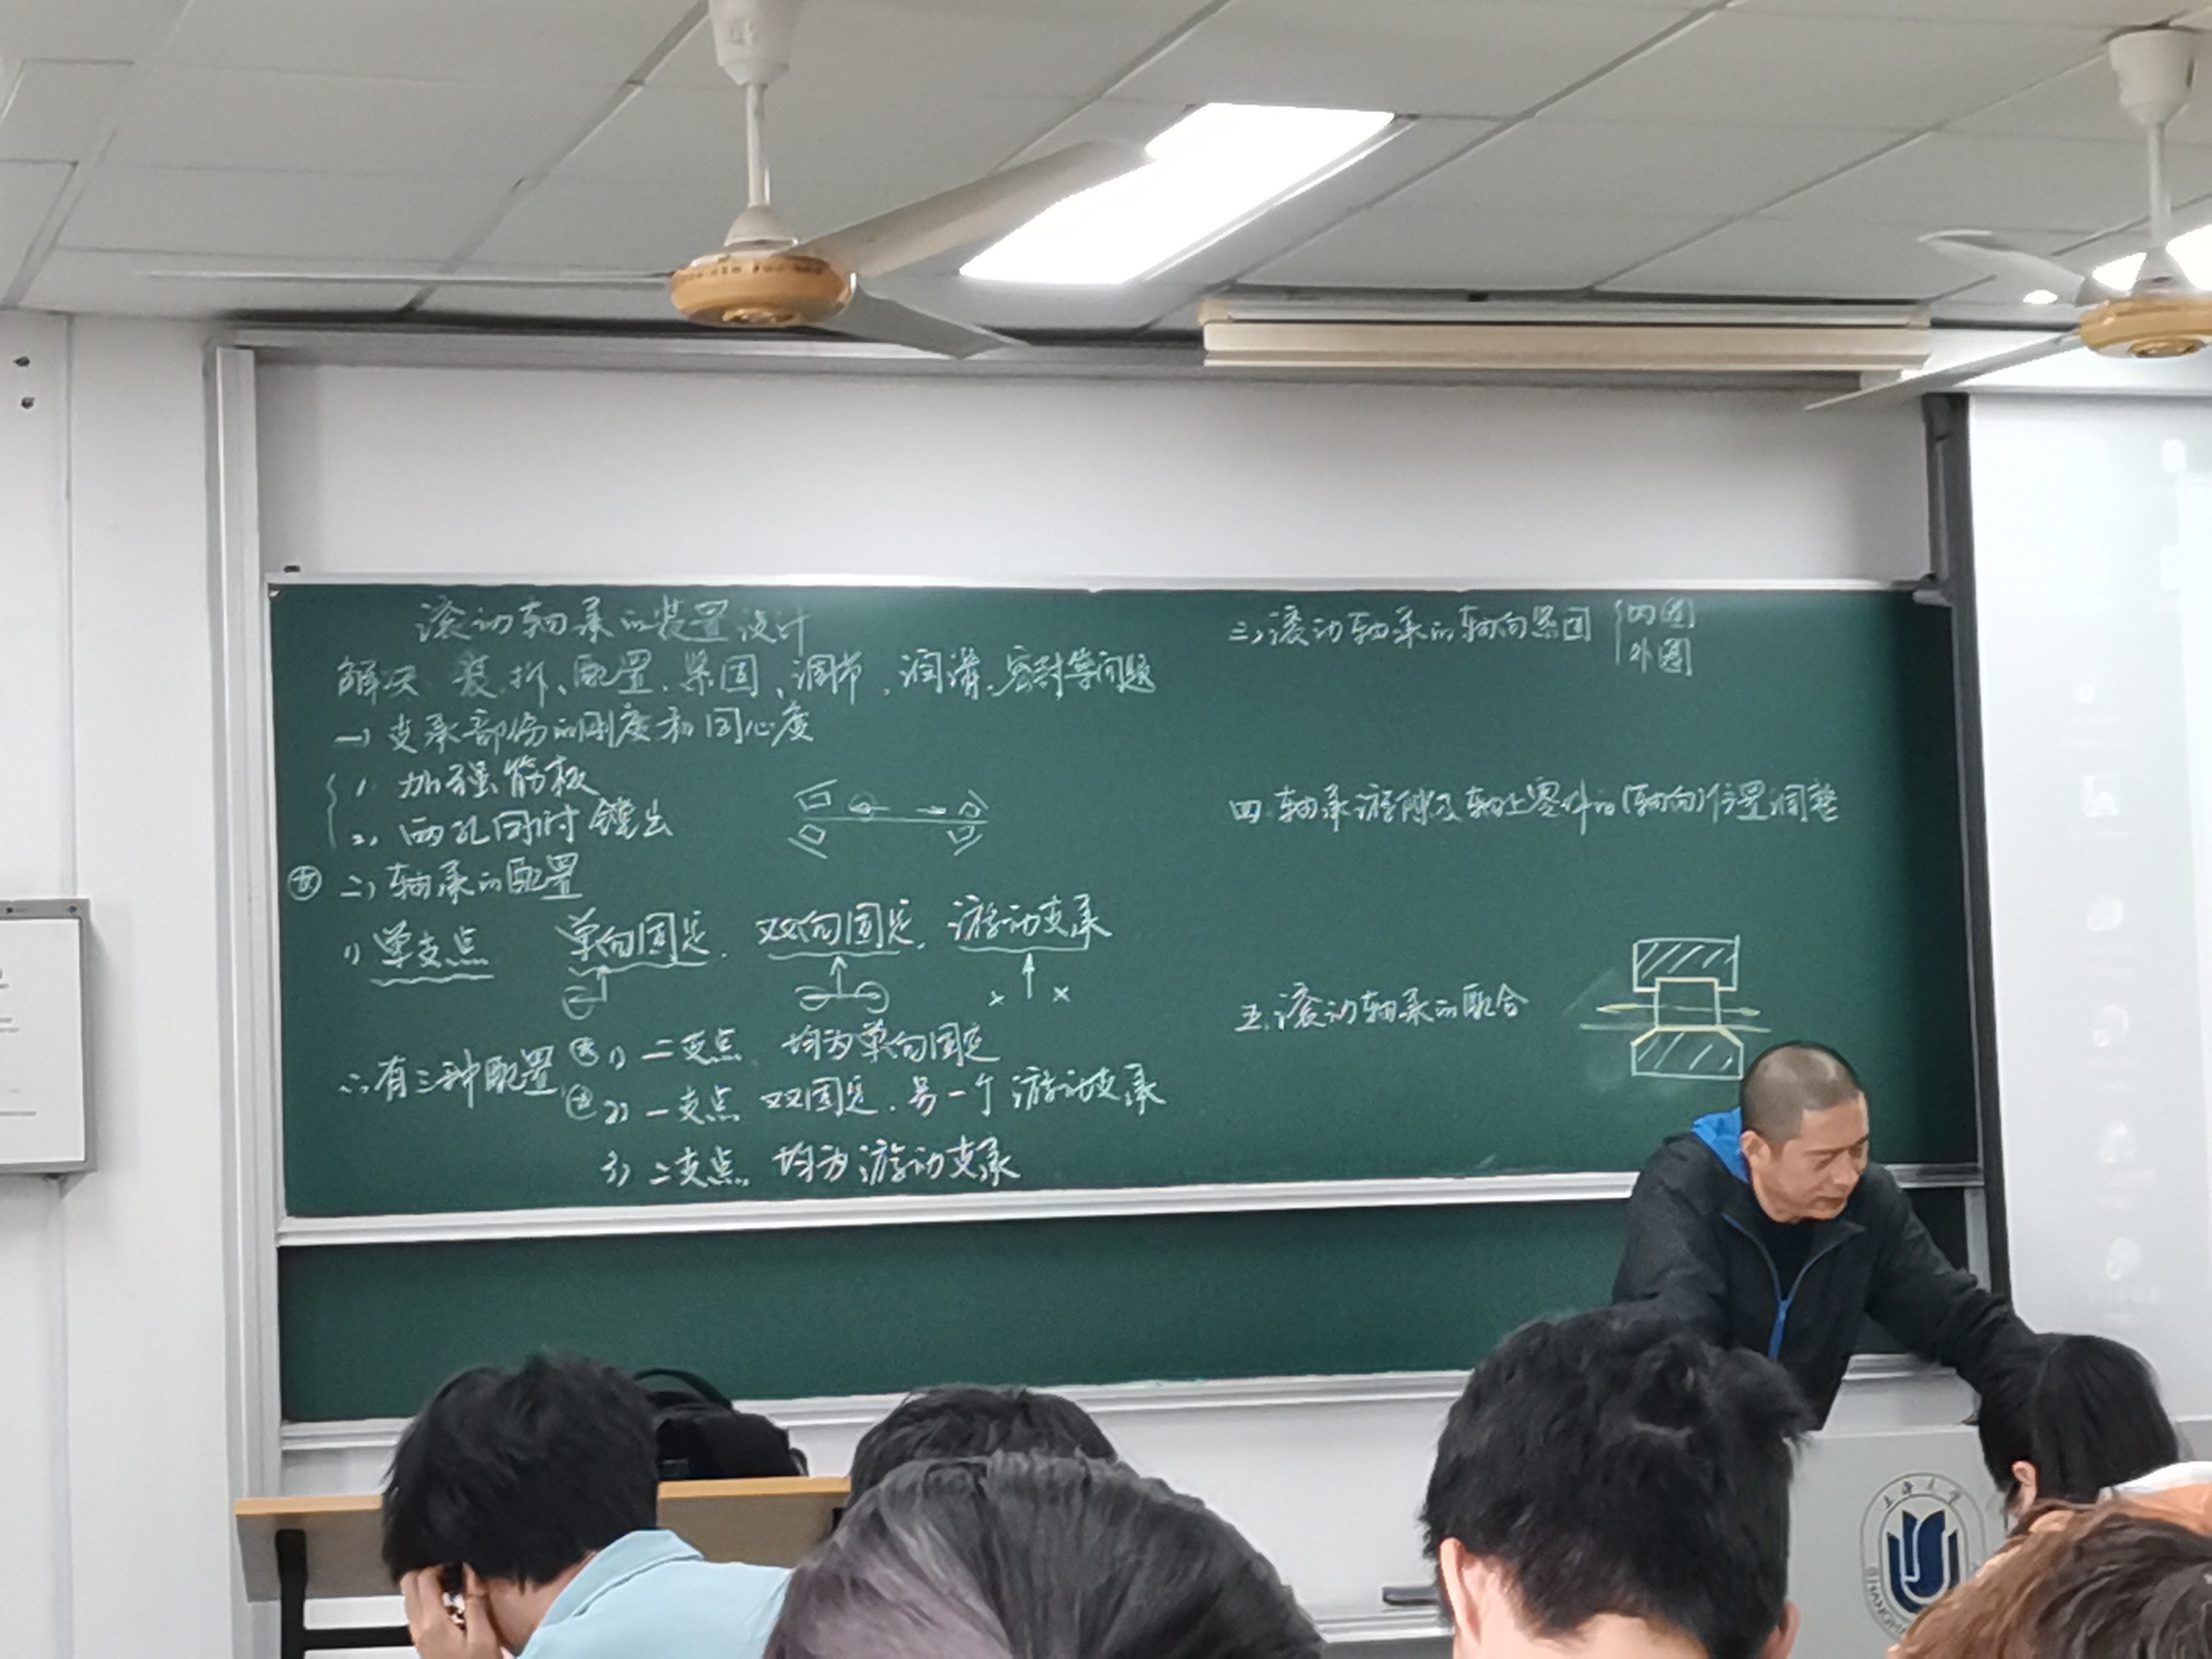 滚动轴承的装置设计
解决 装、拆、配置、紧固、调节、润滑、密封等问题
一、支承部份的刚度和同心度
1、加强筋板
2、两孔同时镗出
二、轴承的配置
1) 单支点 单向固定、双向固定、游动支承
∴有三种配置 1) 二支点 均为单向固定
2) 一支点 双固定、另一个游动支承
3) 二支点 均为游动支承
三、滚动轴承的轴向紧固 内圈
外圈
四、轴承游隙及轴上零件的(轴向)位置调整
五、滚动轴承的配合
上海大学